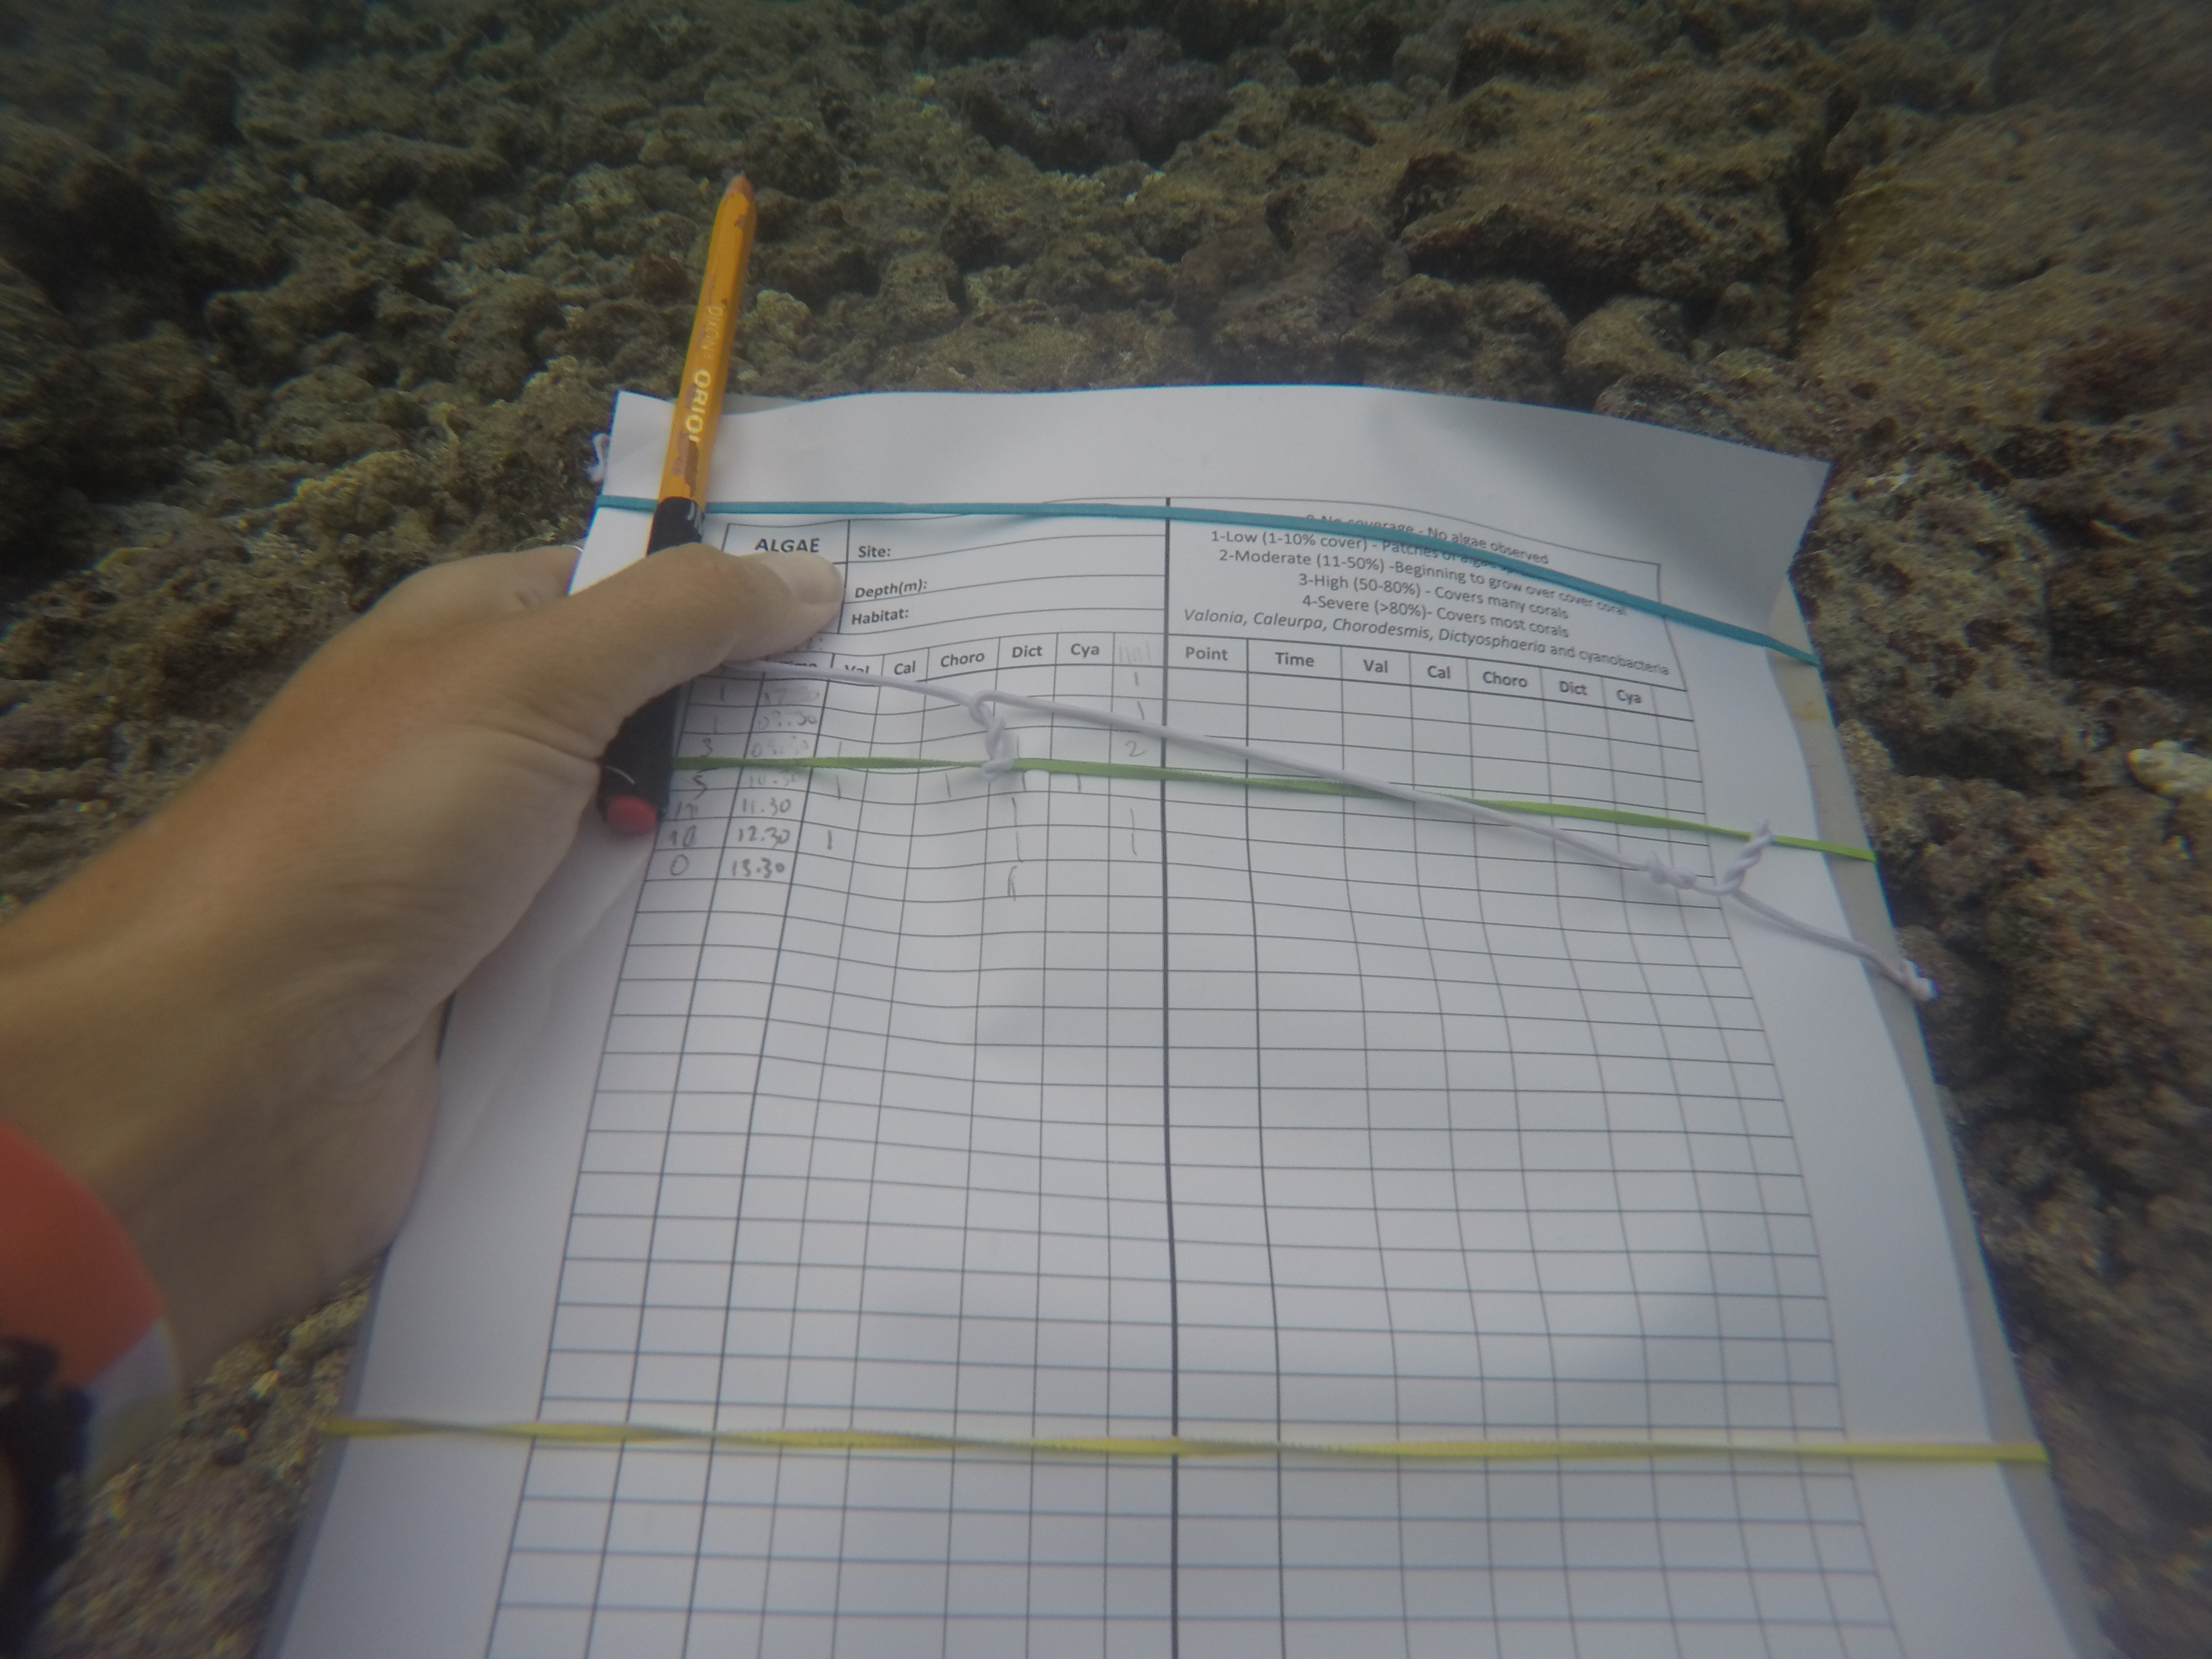 ORIOL
ALGAE
Site:
Depth(m):
Habitat:
0-No coverage - No algae observed
1-Low (1-10% cover) - Patches of algae
2-Moderate (11-50%) -Beginning to grow over cover coral
3-High (50-80%) - Covers many corals
4-Severe (>80%)- Covers most corals
Valonia, Caleurpa, Chorodesmis, Dictyosphaeria and cyanobacteria
Val Cal Choro Dict Cya
Point Time Val Cal Choro Dict Cya
1 1
1 1
3 1 2
5 10.30 1 1 1 1
11.30 1
12.30 1 1 1
0 13.30 1